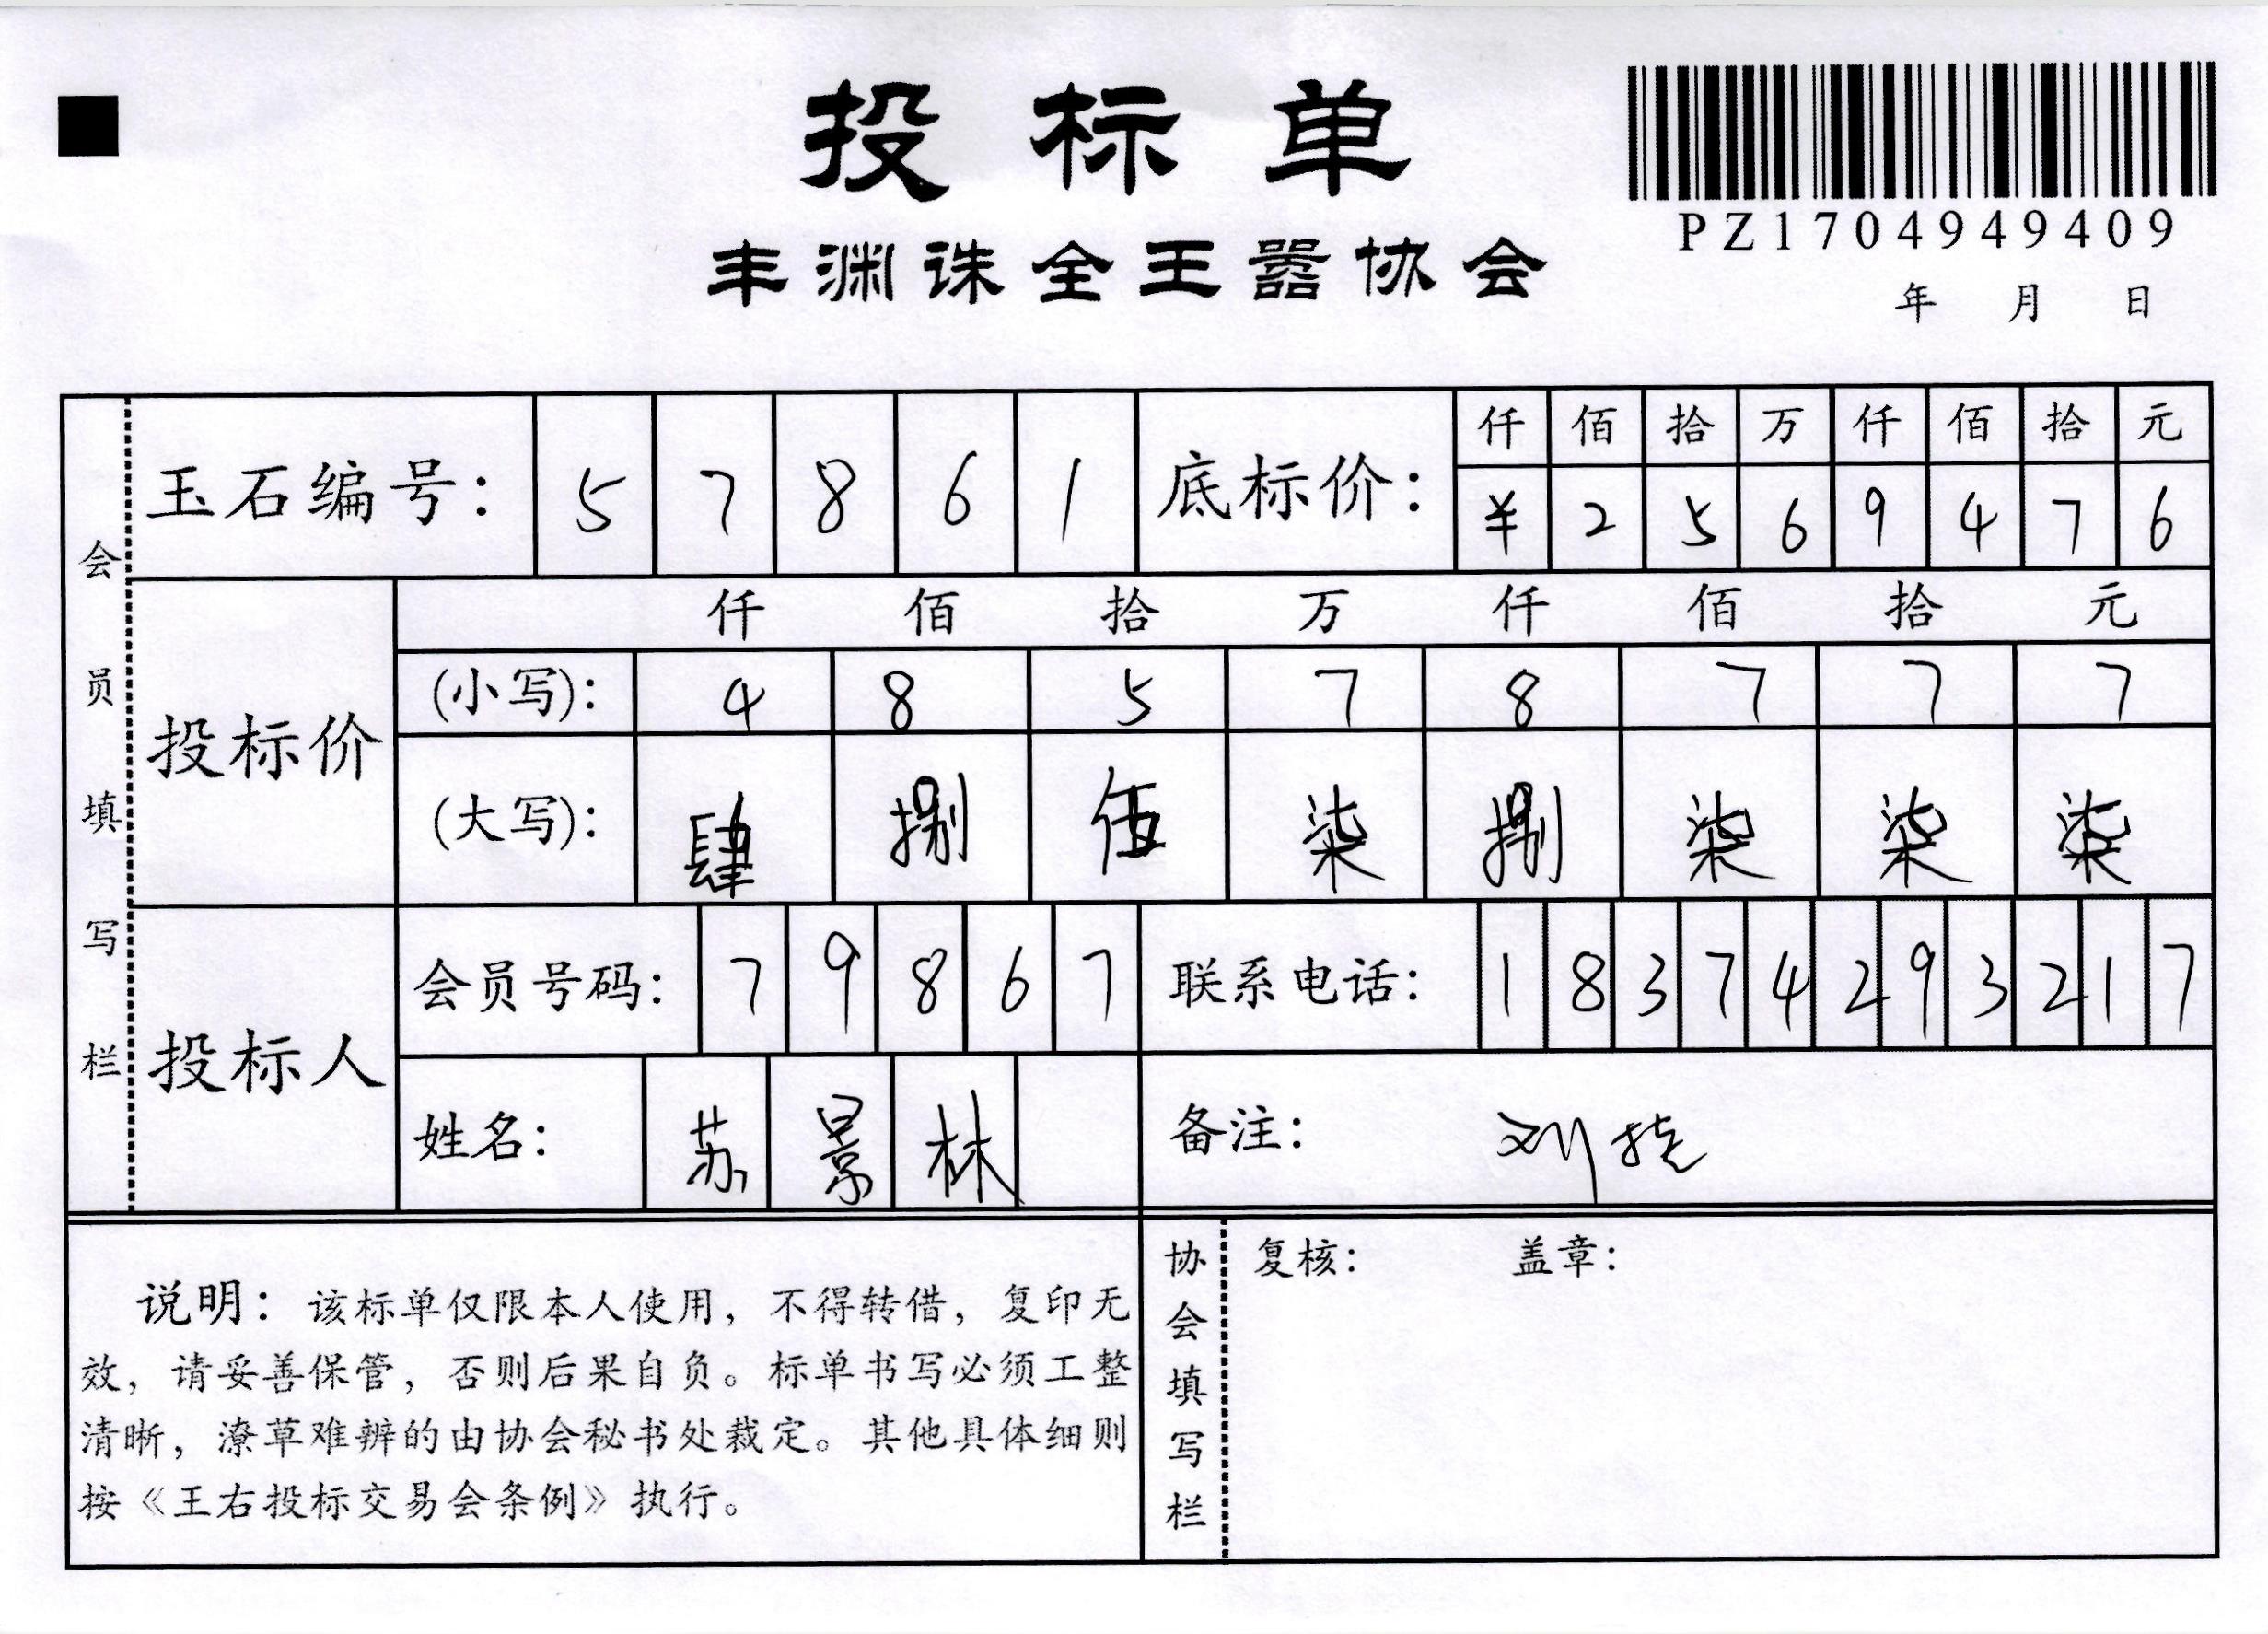 投标单
PZ1704949409
丰渊诛全王嚣协会
年 月 日
会员填写栏
玉石编号: 5 7 8 6 1 底标价: 仟 佰 拾 万 仟 佰 拾 元
¥ 2 5 6 9 4 7 6
投标价 仟 佰 拾 万 仟 佰 拾 元
(小写): 4 8 5 7 8 7 7 7
(大写): 肆 捌 伍 柒 捌 柒 柒 柒
投标人 会员号码: 7 9 8 6 7 联系电话: 1 8 3 7 4 2 9 3 2 1 7
姓名: 苏 景 林 备注: 刘
说明：该标单仅限本人使用，不得转借，复印无
效，请妥善保管，否则后果自负。标单书写必须工整
清晰，潦草难辨的由协会秘书处裁定。其他具体细则
按《王右投标交易会条例》执行。
协会填写栏
复核: 盖章: